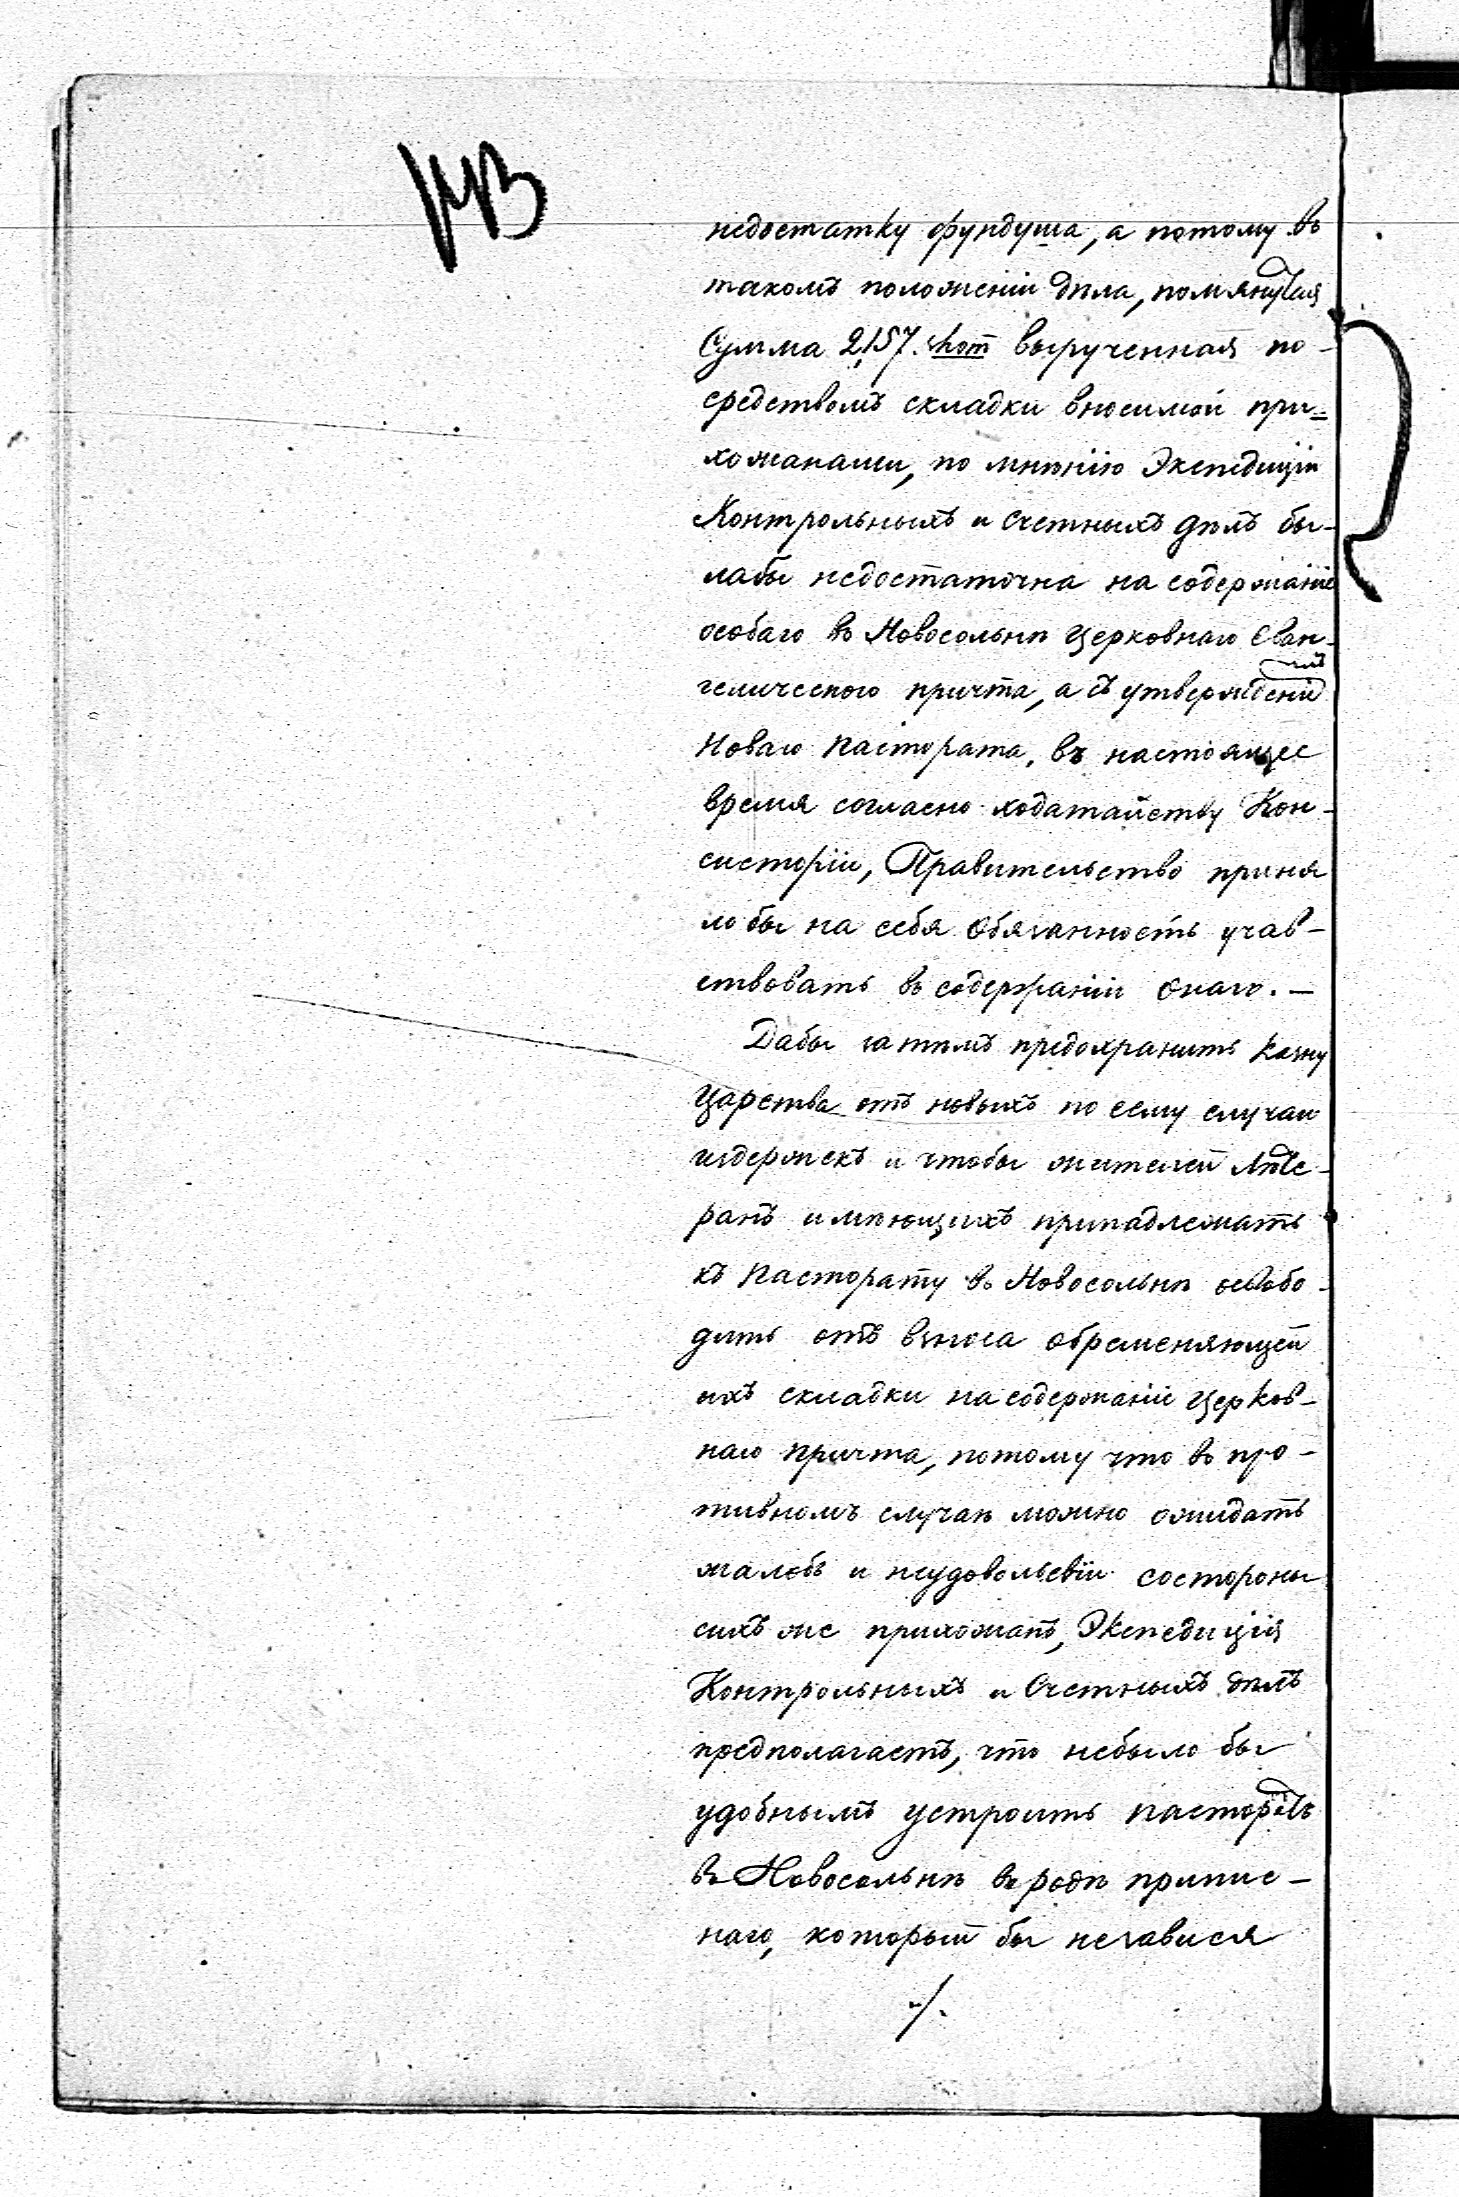 143
недостатку фундуша, а потому въ
такомъ положеніи дѣла, помянутая
Сумма 2,157. злот вырученная по-
средствомъ складки вносимой при=
хожанами, по мнѣнію Экспедиціи
Контрольныхъ и счетныхъ дѣлъ бы-
лабы недостаточна на содержаніе
особаго въ Новосольнѣ Церковнаго Еван-
гелическаго причта, а съ утвержденіемъ
Новаго Пастората, въ настоящее
время согласно ходатайству Кон-
систоріи, Правительство приня
ло бы на себя обязанность учав-
ствовать въ содержаніи онаго. —
Дабы затѣмъ предохранить казну
Царства отъ новыхъ по сему случаю
издержекъ и чтобы жителей Люте-
ранъ имѣющихъ принадлежать
къ Пасторату въ Новосольнѣ освобо-
дить отъ взноса обременяющей
ихъ складки на содержаніе Церков-
наго причта, потому что въ про-
тивномъ случаѣ можно ожидать
жалобъ и неудовольсвіи состороны
сихъ же прихожанъ, Экспедиція
Контрольныхъ и Счетныхъ дѣлъ
предполагаетъ, что небыло бы
удобнымъ устроить пасторатъ
въ Новосольнѣ въ родѣ припис-
наго, который бы независя
./.